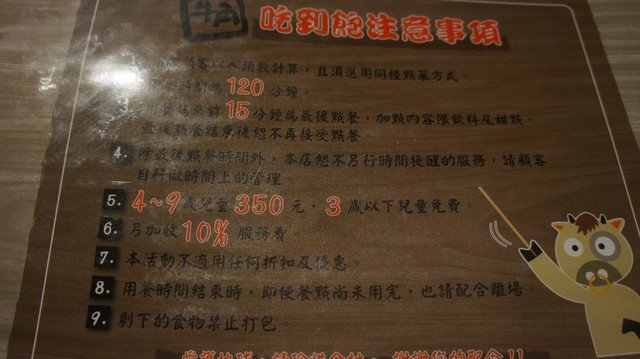 牛角 吃到飽注意事項
顧客以人頭數計算，且須選用同種點菜方式。
時間為120分鐘。
結束前15分鐘為最後點餐，加點內容限飲料及甜點，
最後點餐結束後恕不再接受點餐。
4. 除最後點餐時間外，本店恕不另行時間提醒的服務，請顧客
自行做時間上的管理。
5. 4~9歲兒童350元，3歲以下兒童免費。
6. 另加收10%服務費。
7. 本活動不適用任何折扣及優惠。
8. 用餐時間結束時，即使餐點尚未用完，也請配合離場。
9. 剩下的食物禁止打包。
謝謝您的配合!!